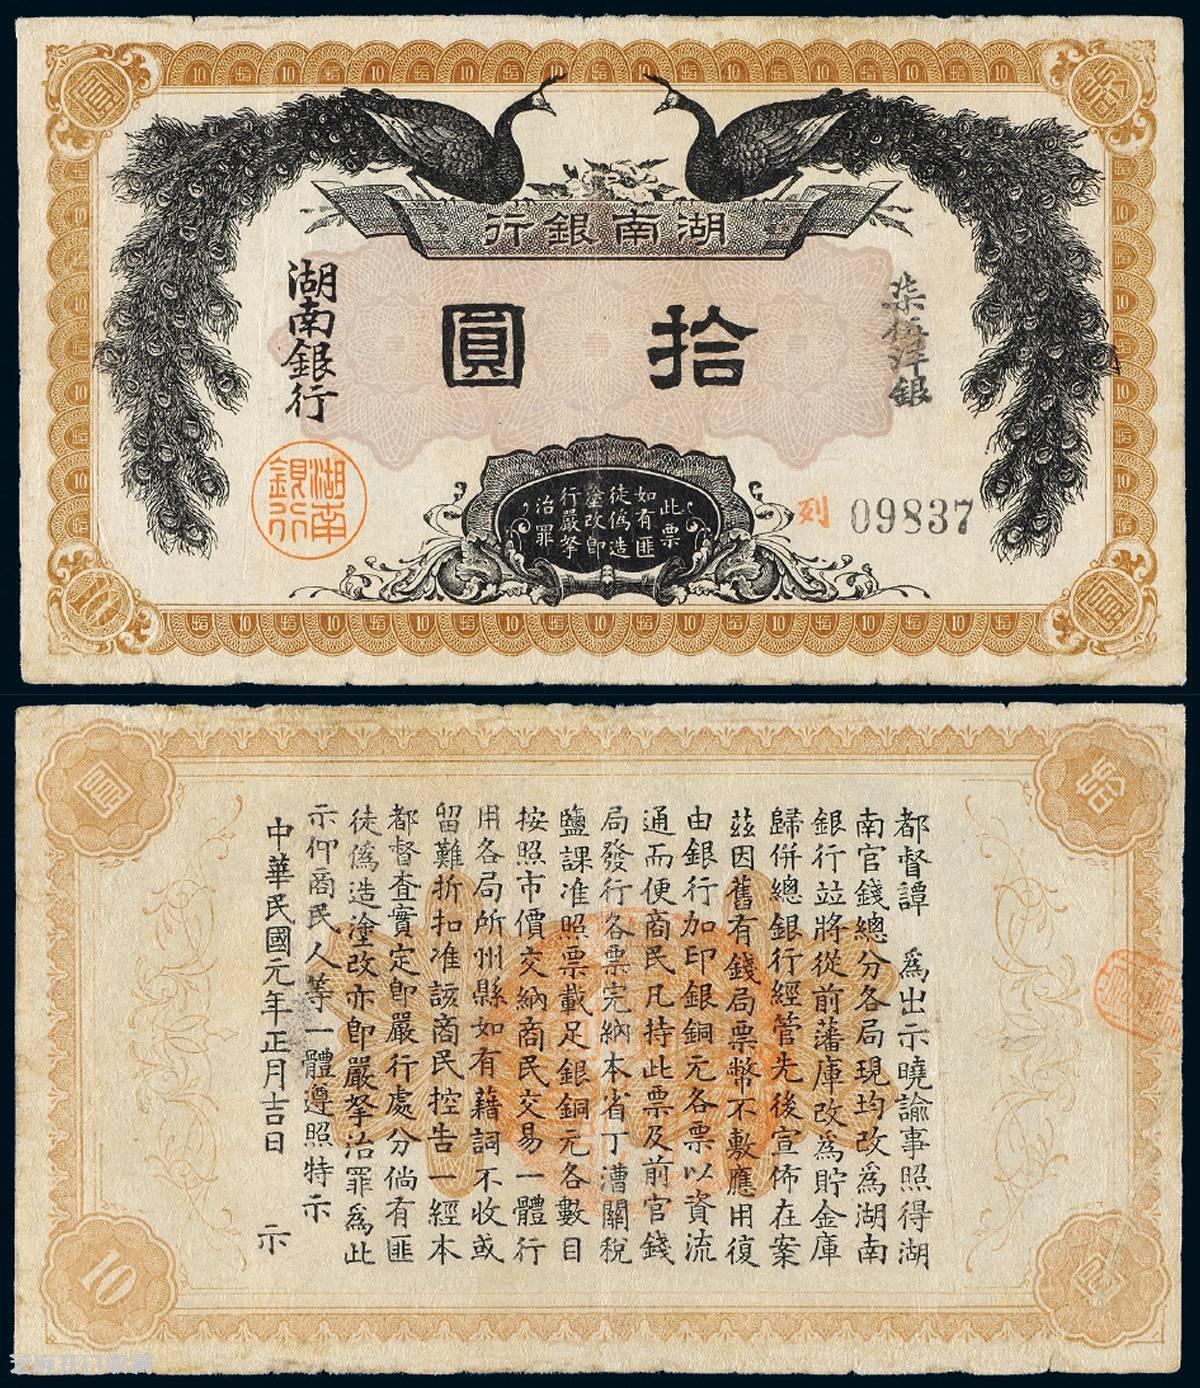 湖南銀行
拾圓
柒
洋銀
湖南銀行
湖南
銀行
列 09837
此票
如有匪
徒偽造
塗改即
行嚴拏
治罪
圓
拾
10
圓
圓
拾
10
圓
都督譚 為出示曉諭事照得湖
南官錢總分各局現均改為湖南
銀行竝將從前藩庫改為貯金庫
歸併總銀行經管先後宣佈在案
茲因舊有錢局票幣不敷應用復
由銀行加印銀銅元各票以資流
通而便商民凡持此票及前官錢
局發行各票完納本省丁漕關稅
鹽課准照票載足銀銅元各數目
按照市價交納商民交易一體行
用各局所州縣如有藉詞不收或
留難折扣准該商民控告一經本
都督查實定卽嚴行處分倘有匪
徒偽造塗改亦卽嚴拏治罪為此
示仰商民人等一體遵照特示
中華民國元年正月吉日 示